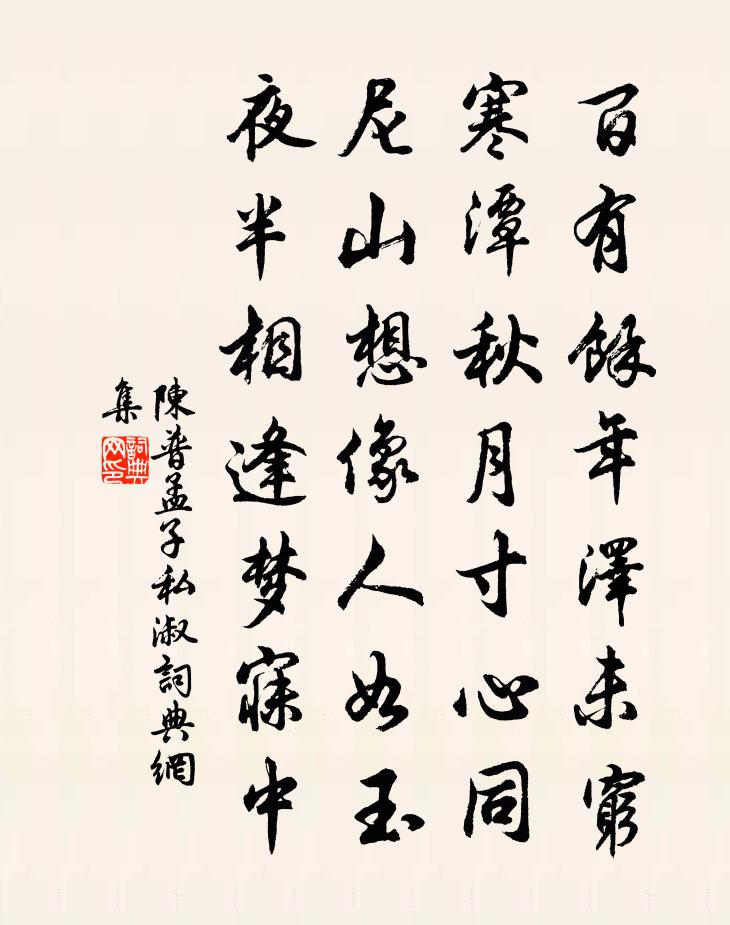 百有餘年澤未窮
寒潭秋月寸心同
尼山想像人如玉
夜半相逢梦寐中
陳普孟子私淑詞典網
集
詞典网印